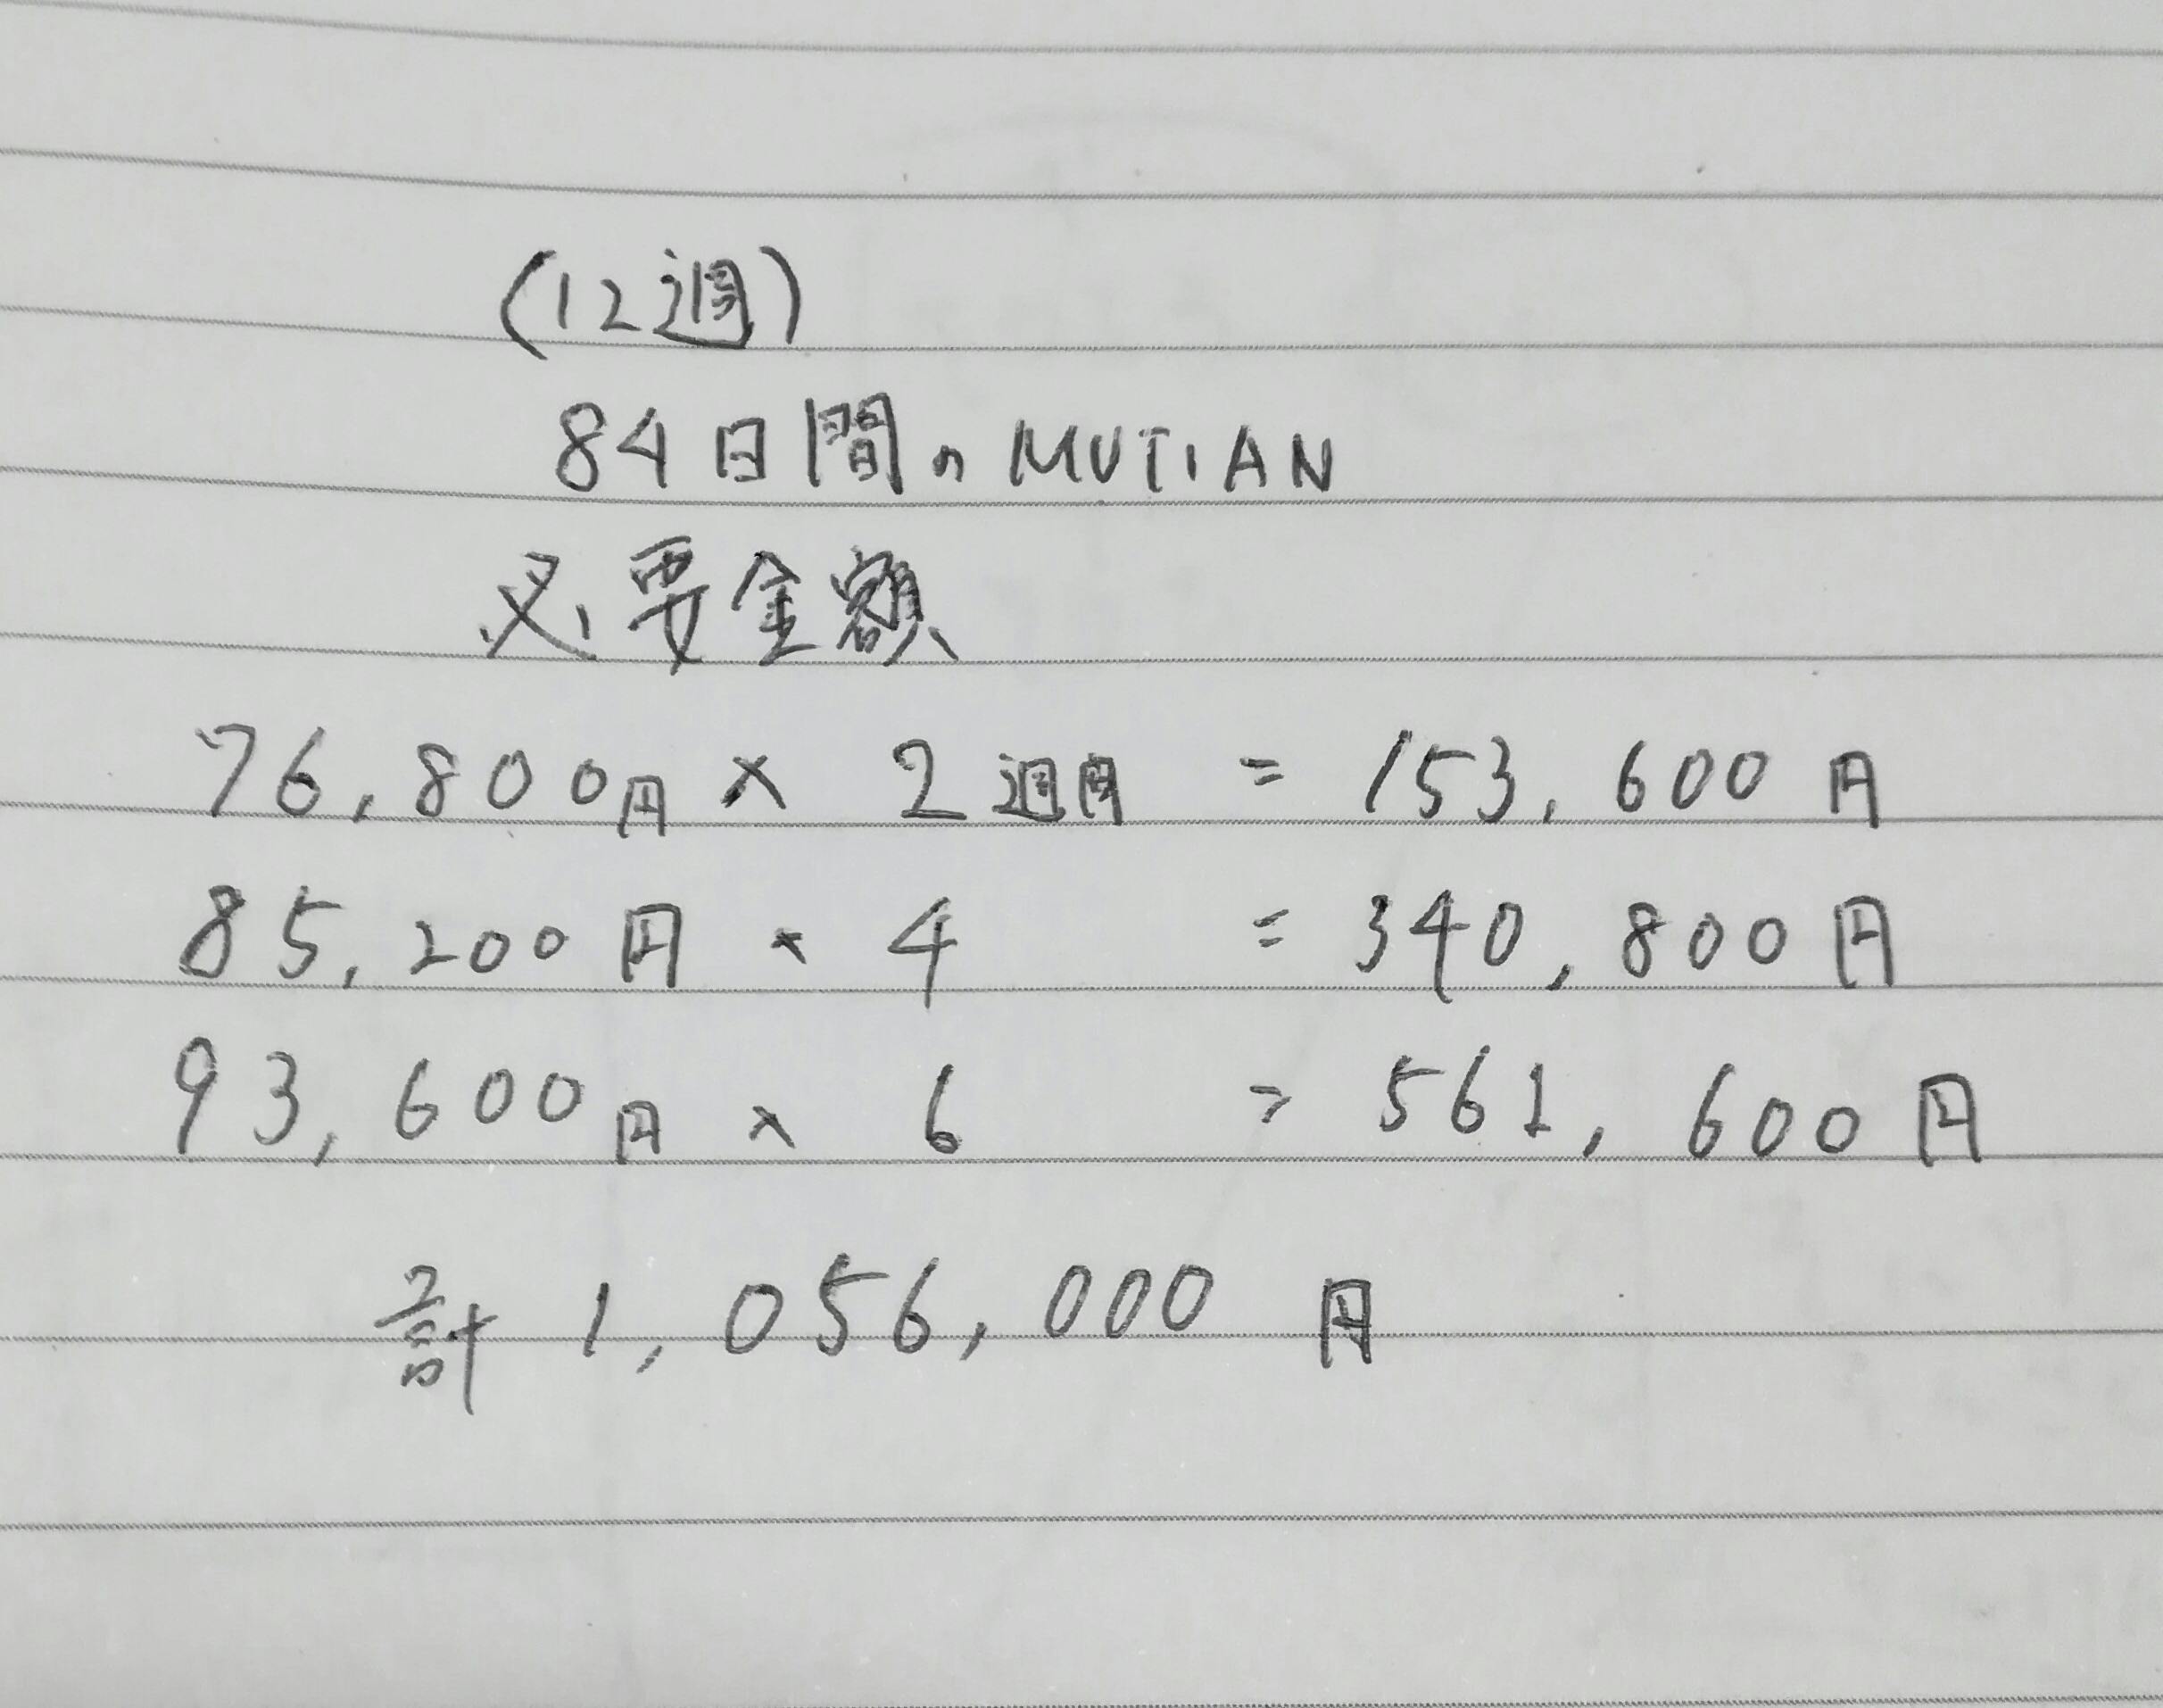 (12週)
84日間のMUTIAN
必要金額
76,800円 × 2週間 = 153,600円
85,200円 × 4 = 340,800円
93,600円 × 6 = 561,600円
計 1,056,000円